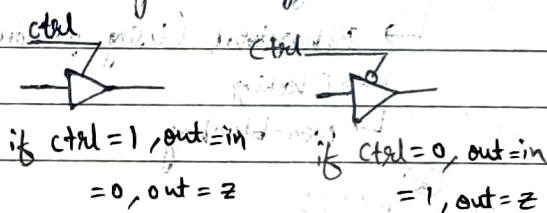 ctrl
ctrl
if ctrl=1, out=in
=0, out=z
if ctrl=0, out=in
=1, out=z